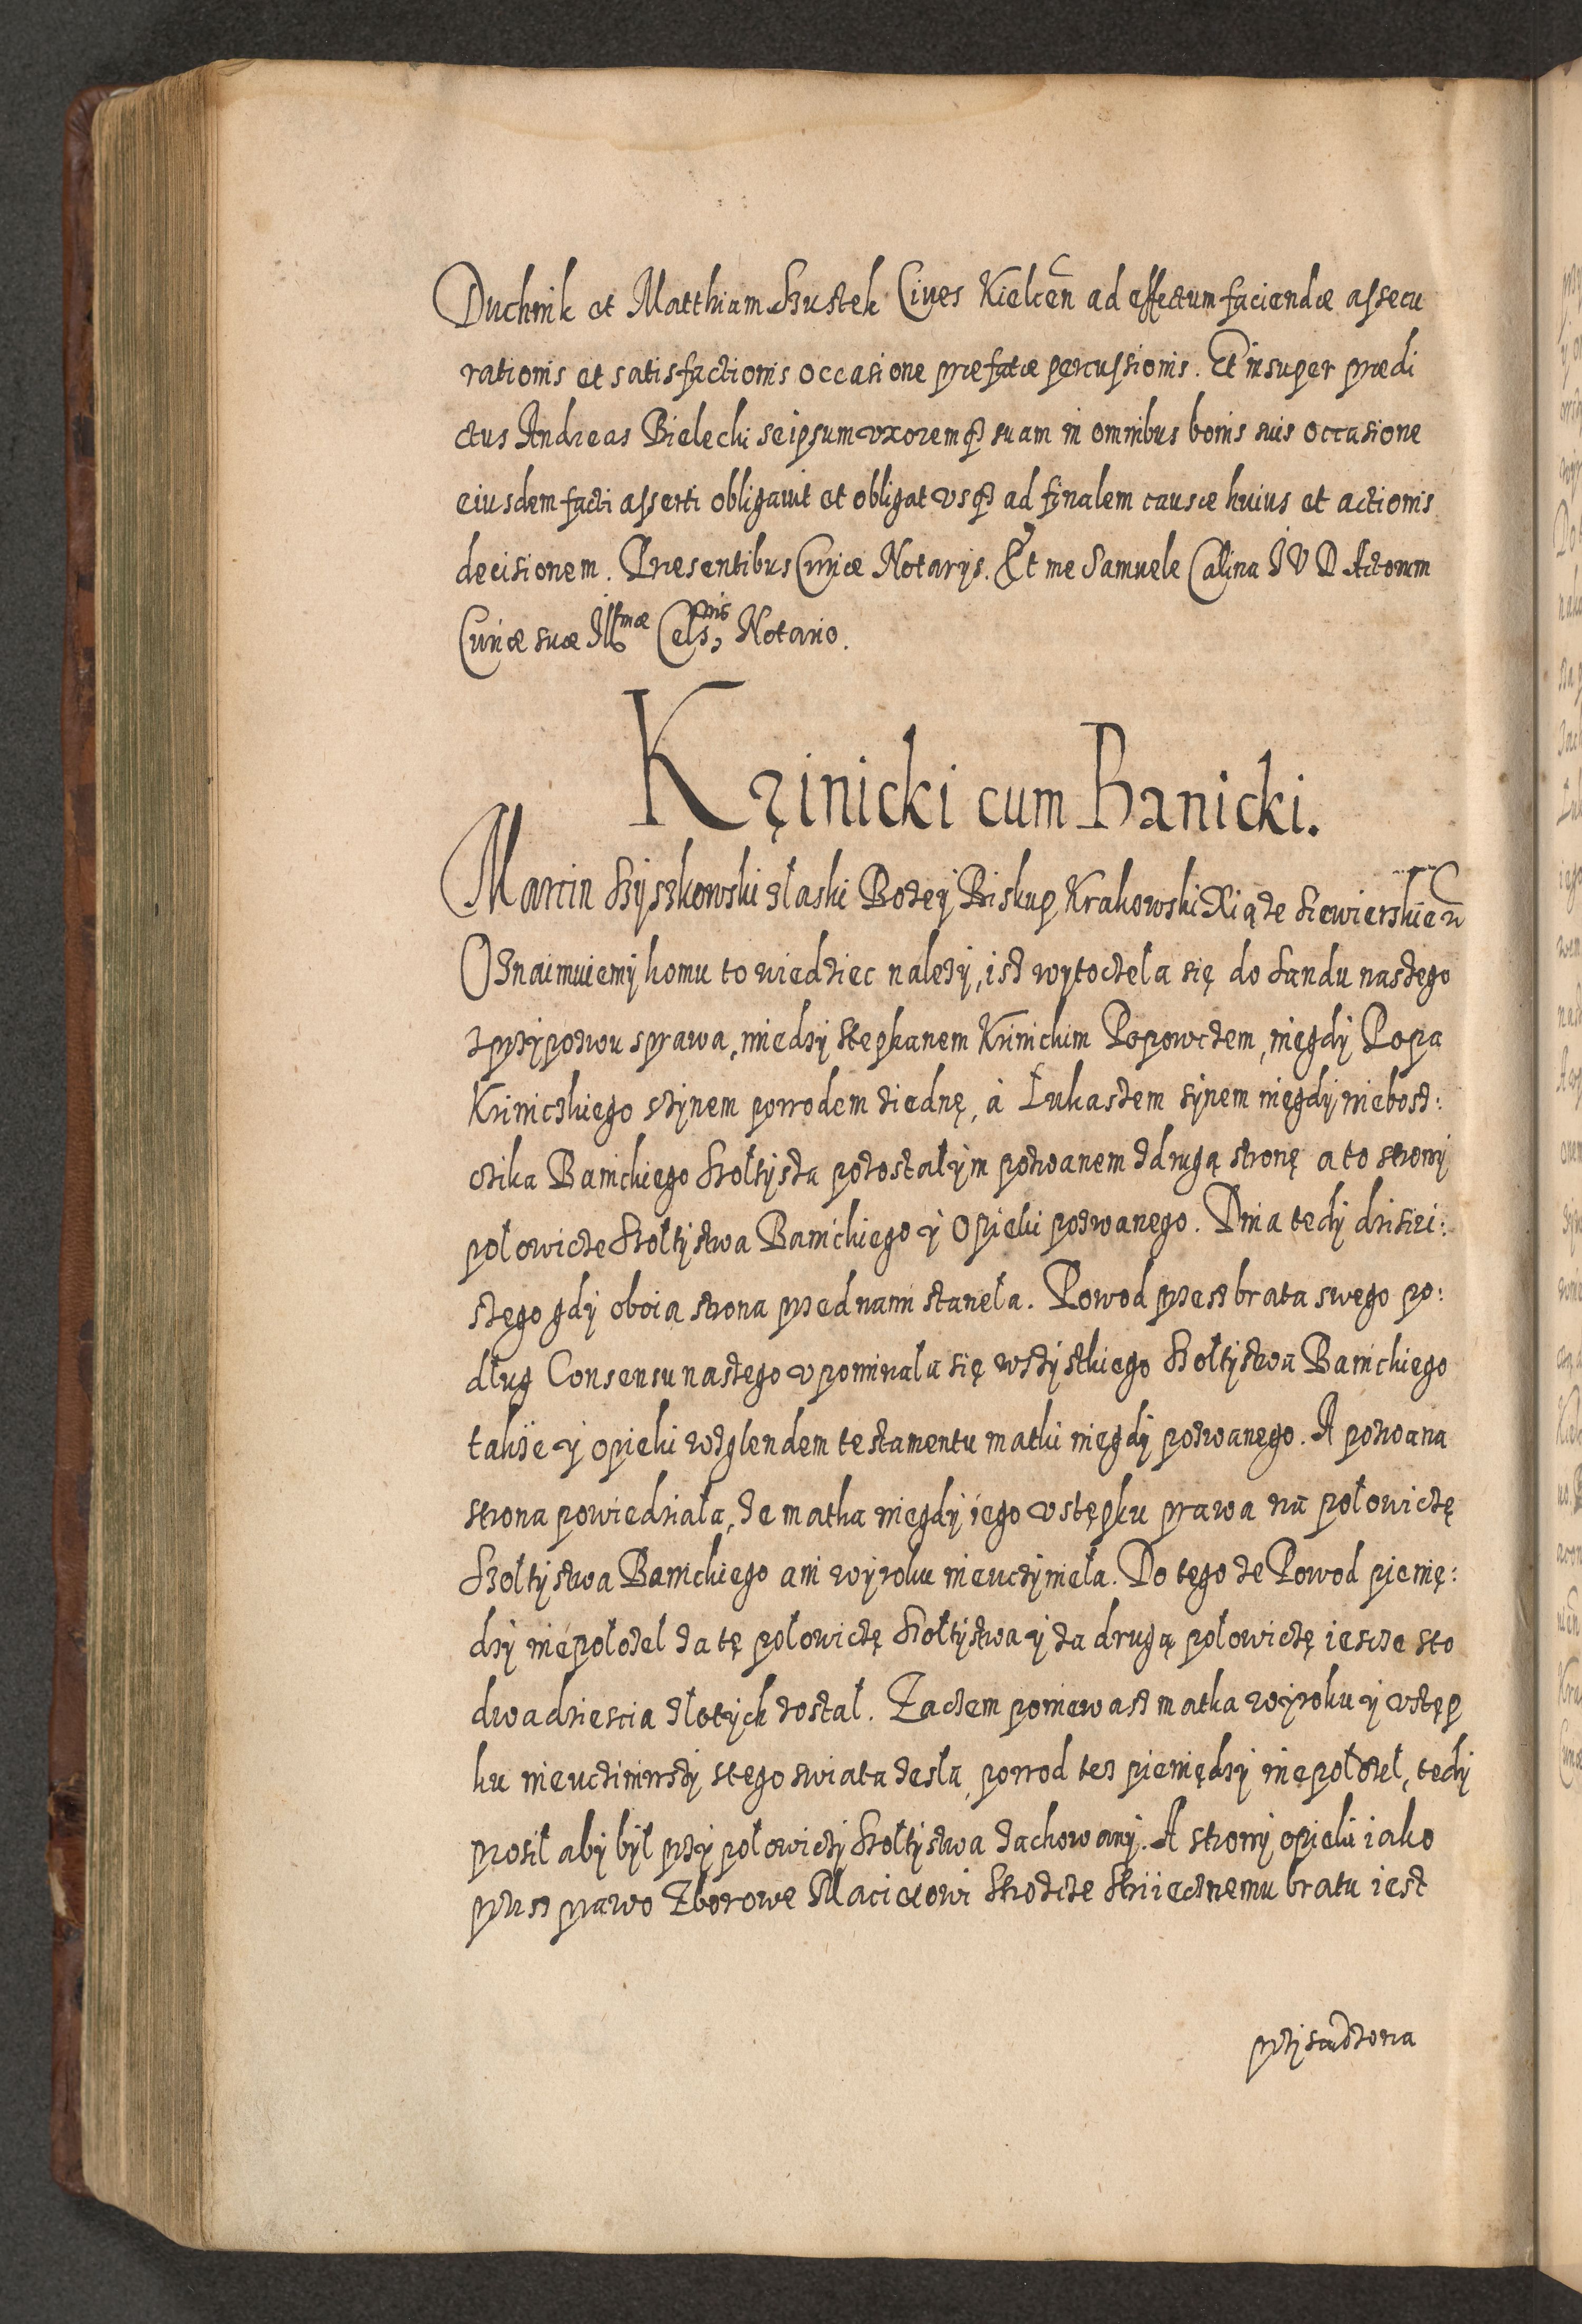 Duchnik et Matthiam Szustek Cives Kielcen ad effectum faciendæ assecu
rationis et satisfactionis occasione præfatæ percussionis. Et insuper prædi
ctus Andreas Bielecki seipsum vxoremq3 suam in omnibus bonis suis occasione
eiusdem facti asserti obligavit et obligat vsq3 ad finalem causæ huius et actionis
decisionem. Præsentibus Curiæ Notarys. Et me Samuele Calina I V D Actorum
Curiæ suæ Illmæ Celsnis Notario.
Krzinicki cum Banicki.
Marcin Szyszkowski złaski Bozey Biskup Krakowski Xiąze Siewierskie
Oznaimuiemy komu to wiedziec nalezy, isz wytoczela się do Sandu naszego
z przypozwu sprawa, miedzy Stephanem Krinickim Popowczem, niegdy Popa
Kriniczkiego szynem powodem ziednę, à Łukaszem synem niegdy niebosz:
czika Banickiego Szołtysza pozostałym pozwanem z drugą stronę a to strony
połowicze Szołtystwa Banickiego y Opieki pozwanego. Dnia tedy dzisiei:
szego gdy oboia strona przed nami stanęła. Powod przesz brata swego po:
dług Consensu naszego vpominala się wszystkiego Szołtystwa Banickiego
takze y opieki wzglendem testamentu matki niegdy pozwanego. A pozwana
strona powiedziała, ze matka niegdy iego vstępku prawa na połowiczę
Szołtystwa Banickiego ani wyroku nieuczyniela. Do tego ze Powod pienię:
dzy niepołozel za tę połowiczę Szołtystwa y za drugą połowiczę iescze sto
dwadziescia złotych zostal. Zaczem poniewasz matka wyroku y vstęp
ku nieucziniwszy stego swiata zesła, powod tes pieniędzy niepołozel, tedy
prosil aby byl przy połowiczy Szołtystwa zachowany. A strony opieki iako
przesz prawo Zborowe Maciiowi Strozcze Striiecznemu bratu iest
przisandzona